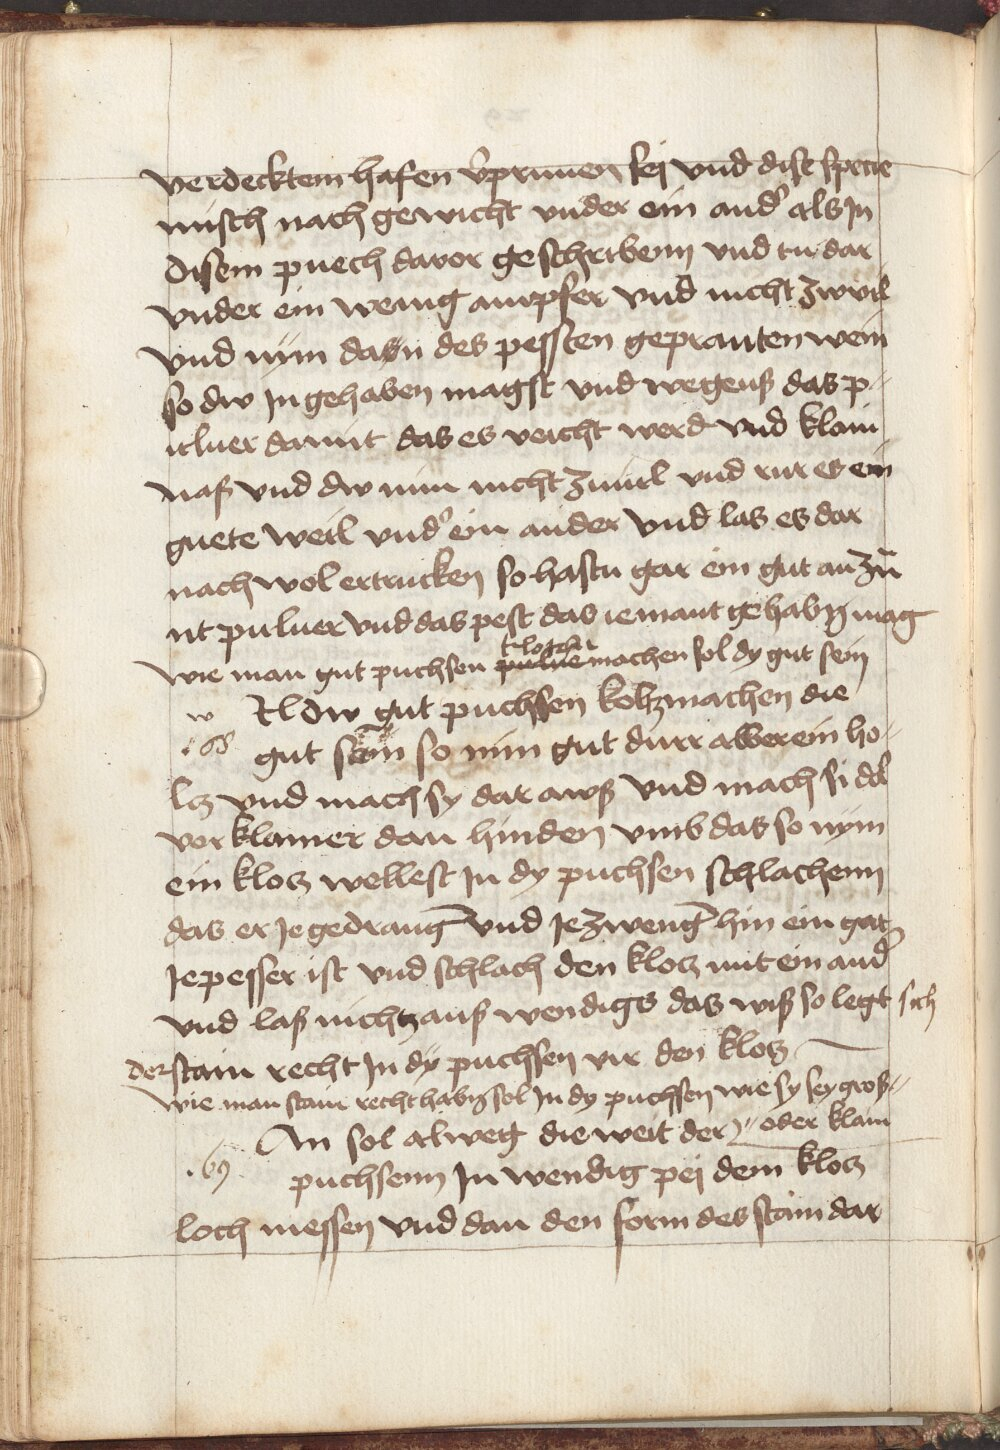 verdecktem hafen v'prunnen sej vnd dise specie
misch nach gewicht vnder ein and' als Jn
disem puech davor geschribenn vnd tu dar
vnder ein wenig anpfer vnd nicht zwuil
vnd nym das̄n des pessten gepranten wein
so dw Jn gehaben magst vnd wegeuß das p-
ulver damit das es veicht werd vnd klain
naß vnd dw nim nicht zuuil vnd rur es ein
guete weil vnd' ein ander vnd las es dar
nach wol ertrucken so hastu gar ein gut anzū
nt puluer vnd das pest das iemant gehabn mag
wie man gut puchsen klotzer machen sol dy gut sein
w Il dw gut puchsen kloz machen die
.68 gut sein so nim gut durr albeer ein ho-
lcz vnd mach sy dar awß vnd mach si dol
vor klainer dan hinden vmb das so nym
ein klocz wellest Jn dy puchsen schlachenn
das er Je gedrang' vnd Je zweng' hin ein gat
Je pesser ist vnd schlach den klocz mit ein and'
vnd laß nichtz auß wendigs das wiß so legt sich
der stain recht Jn dy puchsen vir den klocz
wie man stain recht habn sol Jn dy puchsen wie sy sey groß-
oder klain
An sol alweg die weit der
.69. puchsenn Jn wendig pej dem klocz
loch messen vnd dan den form des stain dar